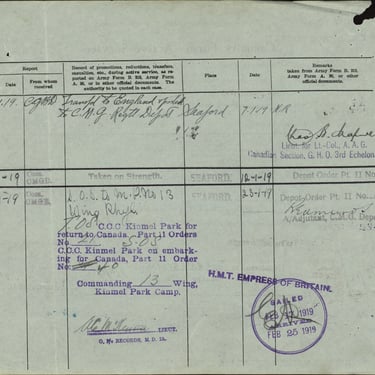 Report
Record of promotions, reductions, transfers,
casualties, etc., during active service, as re-
ported on Army Form B. 213, Army Form
A. 36, or in other official documents. The
authority to be quoted in each case.
Place
Date
Remarks
taken from Army Form B. 213,
Army Form A. 36, or other
official documents.
From whom
received
1.19. Transfd to England posted
to C.M.G. Regtl Depot Seaford 7-1-19
Lieut. for Lt.-Col., A.A.G.
Canadian Section, G. H. Q. 3rd Echelon
-19 Com. CMGD. Taken on Strength. SEAFORD. 12-1-19 Depot Order Pt. II No.
-19 Com. CMGD. S.O.S. to M.D. No 13 SEAFORD. 23-1-19 Depot Order Pt. II No.
Wing Rhyl
A/Adjutant, C.M.G. Depot
TOS C.C.C. Kinmel Park for
return to Canada, Part 11 Orders
No. 21
S.O.S.
C.C.C. Kinmel Park on embark-
ing for Canada, Part 11 Order
No. 40
Commanding 13 Wing,
Kinmel Park Camp.
LIEUT.
O. i/c RECORDS, M.D. 13.
H.M.T. EMPRESS OF BRITAIN.
SAILED
FEB 17 1919
ARRIVED
FEB 25 1919